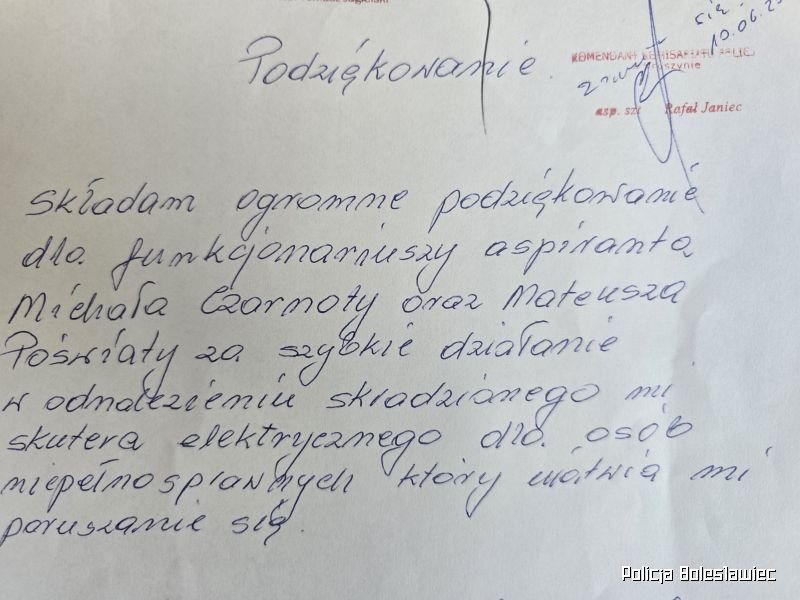 Podziękowanie.
się
10.06.25
KOMENDANT KOMISARIATU POLICJI
asp. szt. Rafał Janiec
Składam ogromne podziękowanie
dla funkcjonariuszy aspiranta
Michała Czarnoty oraz Mateusza
Poświaty za szybkie działanie
w odnalezieniu skradzionego mi
skutera elektrycznego dla osób
niepełnosprawnych który ułatwia mi
poruszanie się.
Policja Bolesławiec